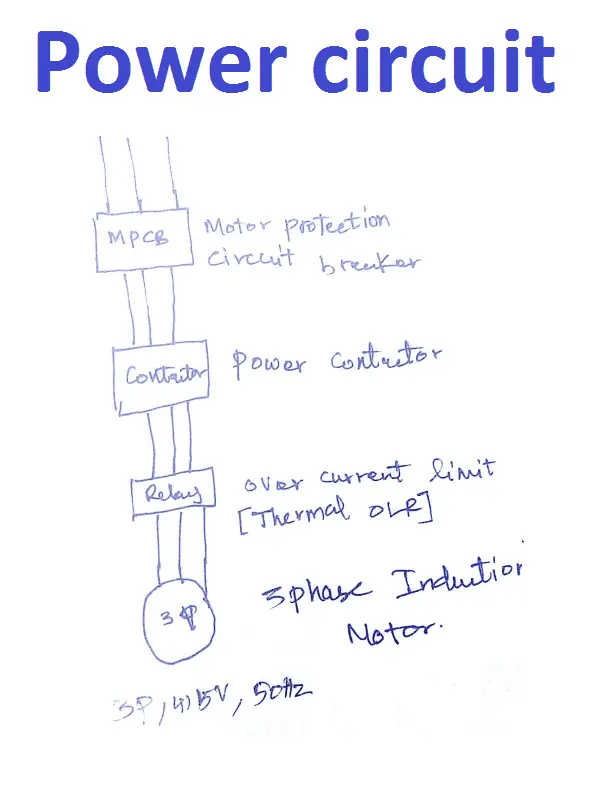 Power circuit
MPCB
Motor protection
circuit breaker
Contactor
Power Contactor
Relay
over current limit
[Thermal OLR]
3φ
3phase Induction
Motor.
3φ, 415V, 50Hz